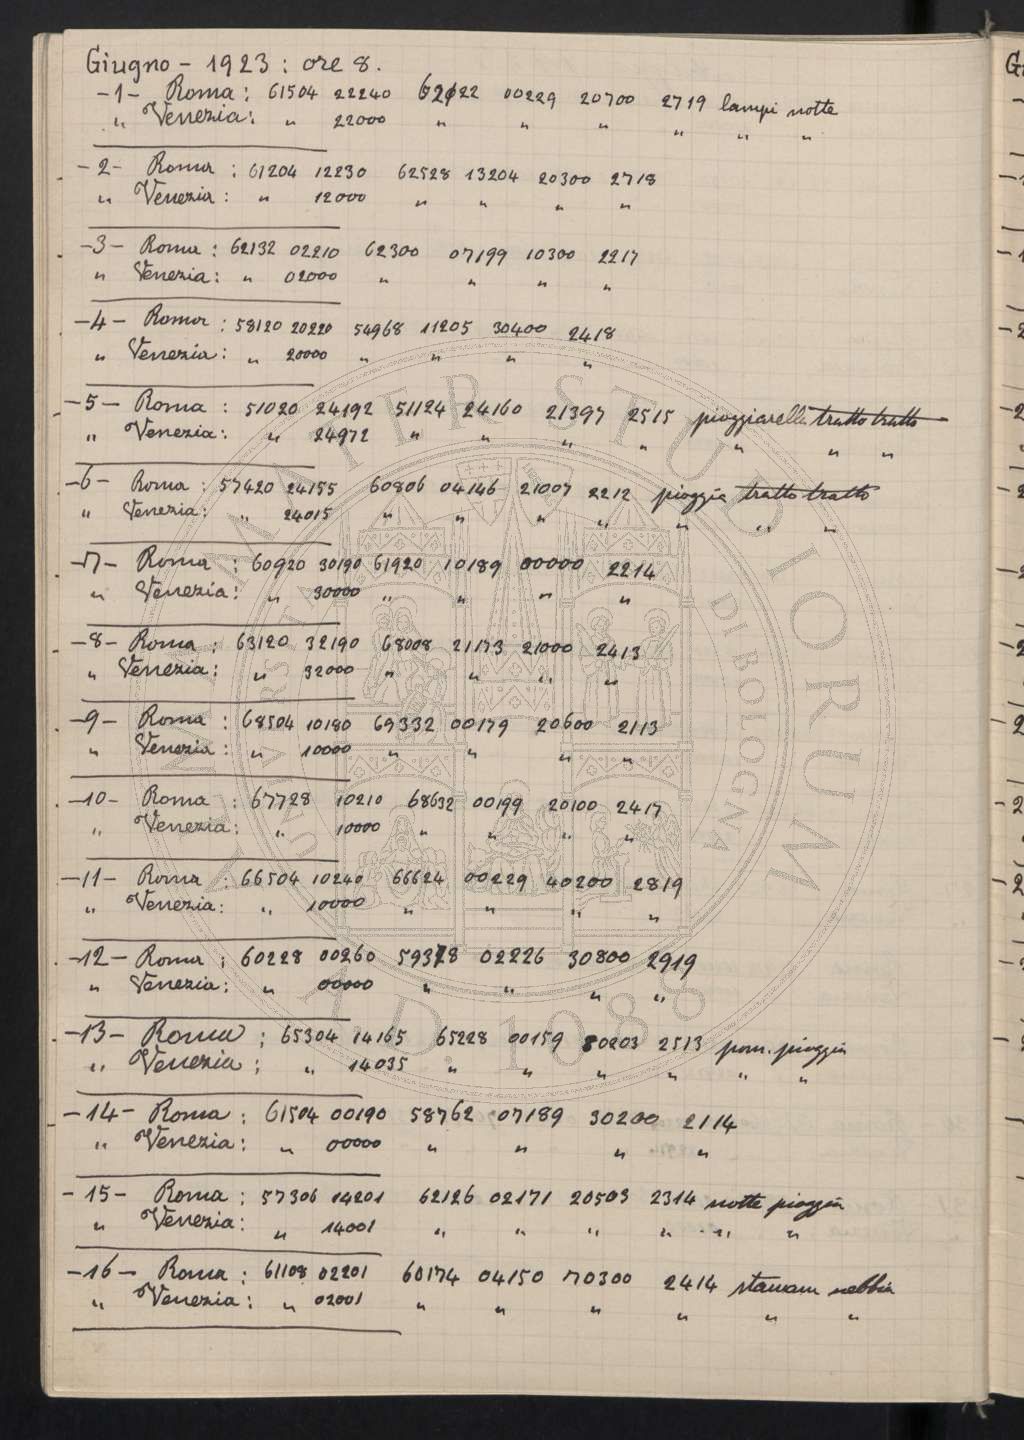 Giugno - 1923 : ore 8.
-1- Roma : 61504 22240 62022 00229 20700 2719 lampi notte
" Venezia : " 22000 " " " " " "
-2- Roma : 61204 12230 62528 13204 20300 2718
" Venezia : " 12000 " " " "
-3- Roma : 62132 02210 62300 07199 10300 2217
" Venezia : " 02000 " " " "
-4- Roma : 58120 20220 54968 11205 30400 2418
" Venezia : " 20000 " " " "
-5- Roma : 51020 24192 51124 24160 21397 2515 pioggiarella tratto tratto
" Venezia : " 24972 " " " " " " "
-6- Roma : 57420 24155 60806 04146 21007 2212 pioggia tratto tratto
" Venezia : " 24015 " " " " " " "
-7- Roma : 60920 30190 61920 10189 00000 2214
" Venezia : " 30000 " " " "
-8- Roma : 63120 32190 68008 21173 21000 2413
" Venezia : " 32000 " " " "
-9- Roma : 68504 10180 69332 00179 20600 2113
" Venezia : " 10000 " " " "
-10- Roma : 67728 10210 68632 00199 20100 2417
" Venezia : " 10000 " " " "
-11- Roma : 66504 10240 66624 00229 40200 2819
" Venezia : " 10000 " " " "
-12- Roma : 60228 00260 59378 02226 30800 2919
" Venezia : " 00000 " " " "
-13- Roma : 65304 14165 65228 00159 80203 2513 pom. pioggia
" Venezia : " 14035 " " " " " "
-14- Roma : 61504 00190 58762 07189 30200 2114
" Venezia : " 00000 " " " "
-15- Roma : 57306 14201 62126 02171 20503 2314 notte pioggia
" Venezia : " 14001 " " " " " "
-16- Roma : 61108 02201 60174 04150 70300 2414 stamani nebbia
" Venezia : " 02001 " " " " " "
ALMA MATER STUDIORUM
UNIVERSITÀ DI BOLOGNA
A.D. 1088